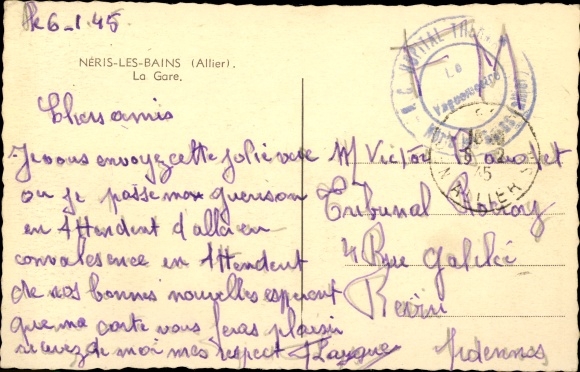 6-1.45
NÉRIS-LES-BAINS (Allier).
La Gare.
HOPITAL
Le
Vaguemestre
45
ALLIER
Chers amis
Je vous envoyez cette jolie vue
ou je passe mon guerison
en Attendent d'alla en
convalesence en Attendent
de vos bonnes nouvelles esperent
que ma carte vous feras plaisir
recevez de moi mes respect
Mr Victor
Tribunal
4 Rue Galilée
Revin
Ardennes